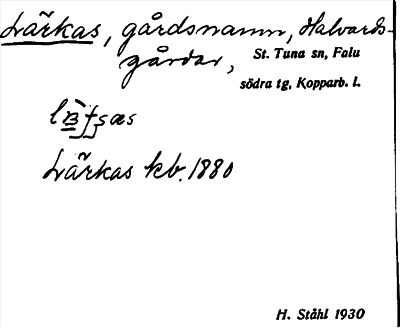 Lärkas, gårdsnamn, Halvards-
gårdar,
St. Tuna sn, Falu
södra tg, Kopparb. l.
Lärkas kb. 1880
H. Ståhl 1930